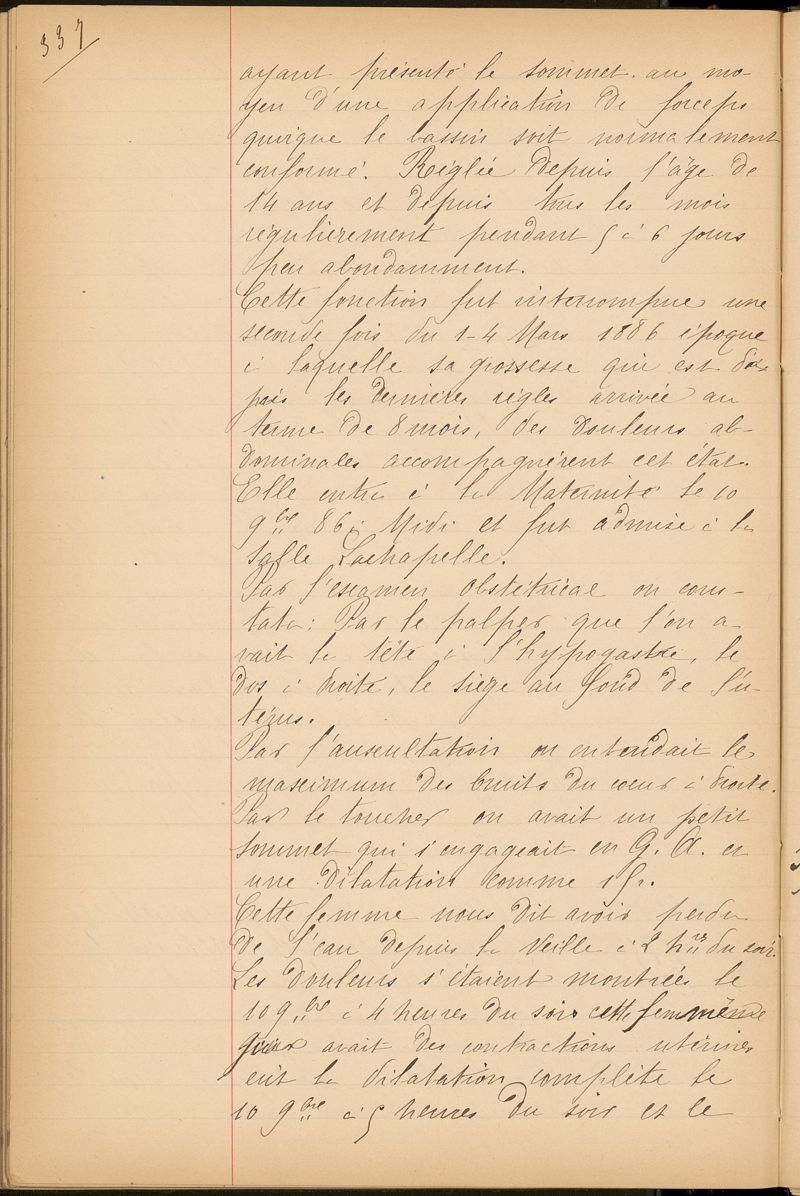 337
ayant présenté le sommet. au mo-
yen d'une application de forceps
quoique le bassin soit normalement
conformé. Réglée depuis l'âge de
14 ans et depuis tous les mois
régulièrement pendant 5 à 6 jours
peu abondamment.
Cette fonction fut interrompue une
seconde fois du 1-4 Mars 1886 époque
à laquelle sa grossesse qui est d'a-
près les dernières règles arrivée au
terme de 8 mois, des douleurs ab-
dominales accompagnèrent cet état.
Elle entra à la Maternité le 10
9bre 86 à Midi et fut admise à la
Salle Lachapelle.
Par l'examen obstétrical on cons-
tata: Par le palper que l'on a-
vait la tête à l'hypogastre, le
dos à droite, le siège au fond de l'u-
térus.
Par l'auscultation on entendait le
maximum des bruits du cœur à droite.
Par le toucher on avait un petit
sommet qui s'engageait en G. A. et
une dilatation comme 1 fr.
Cette femme nous dit avoir perdu
de l'eau depuis la veille à 2 hres du soir.
Les douleurs s'étaient montrées le
10 9bre à 4 heures du soir cette femme
avait des contractions utérines
eut la dilatation complète le
10 9bre à 5 heures du soir et le